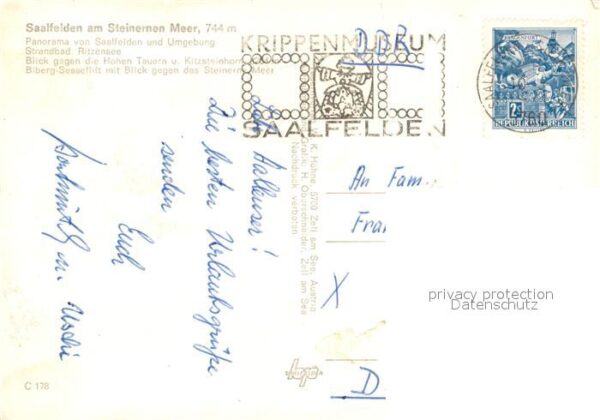 Saalfelden am Steinernen Meer, 744 m
Panorama von Saalfelden und Umgebung
Strandbad Ritzensee
Blick gegen die Hohen Tauern u. Kitzsteinhorn
Biberg-Sessellift mit Blick gegen das Steinerne Meer
KRIPPENMUSEUM
SAALFELDEN
DDR
2S
REPUBLIK ÖSTERREICH
Die besten Urlaubsgrüße
senden
Euch
u. Uschi
K. Hühne, 5700 Zell am See, Austria
Grafik: H. Oberschneider, Zell am See
Nachdruck verboten
An Fam
X
D
privacy protection
Datenschutz
C 178